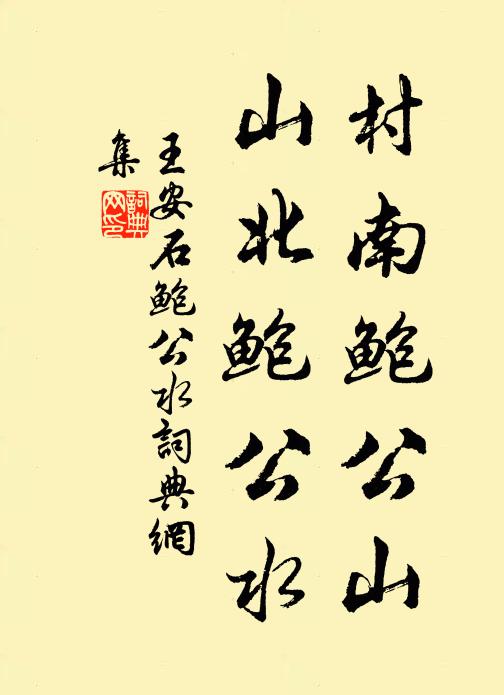 村南鲍公山
山北鲍公水
王安石鲍公水詞典網
集
詞典
网印